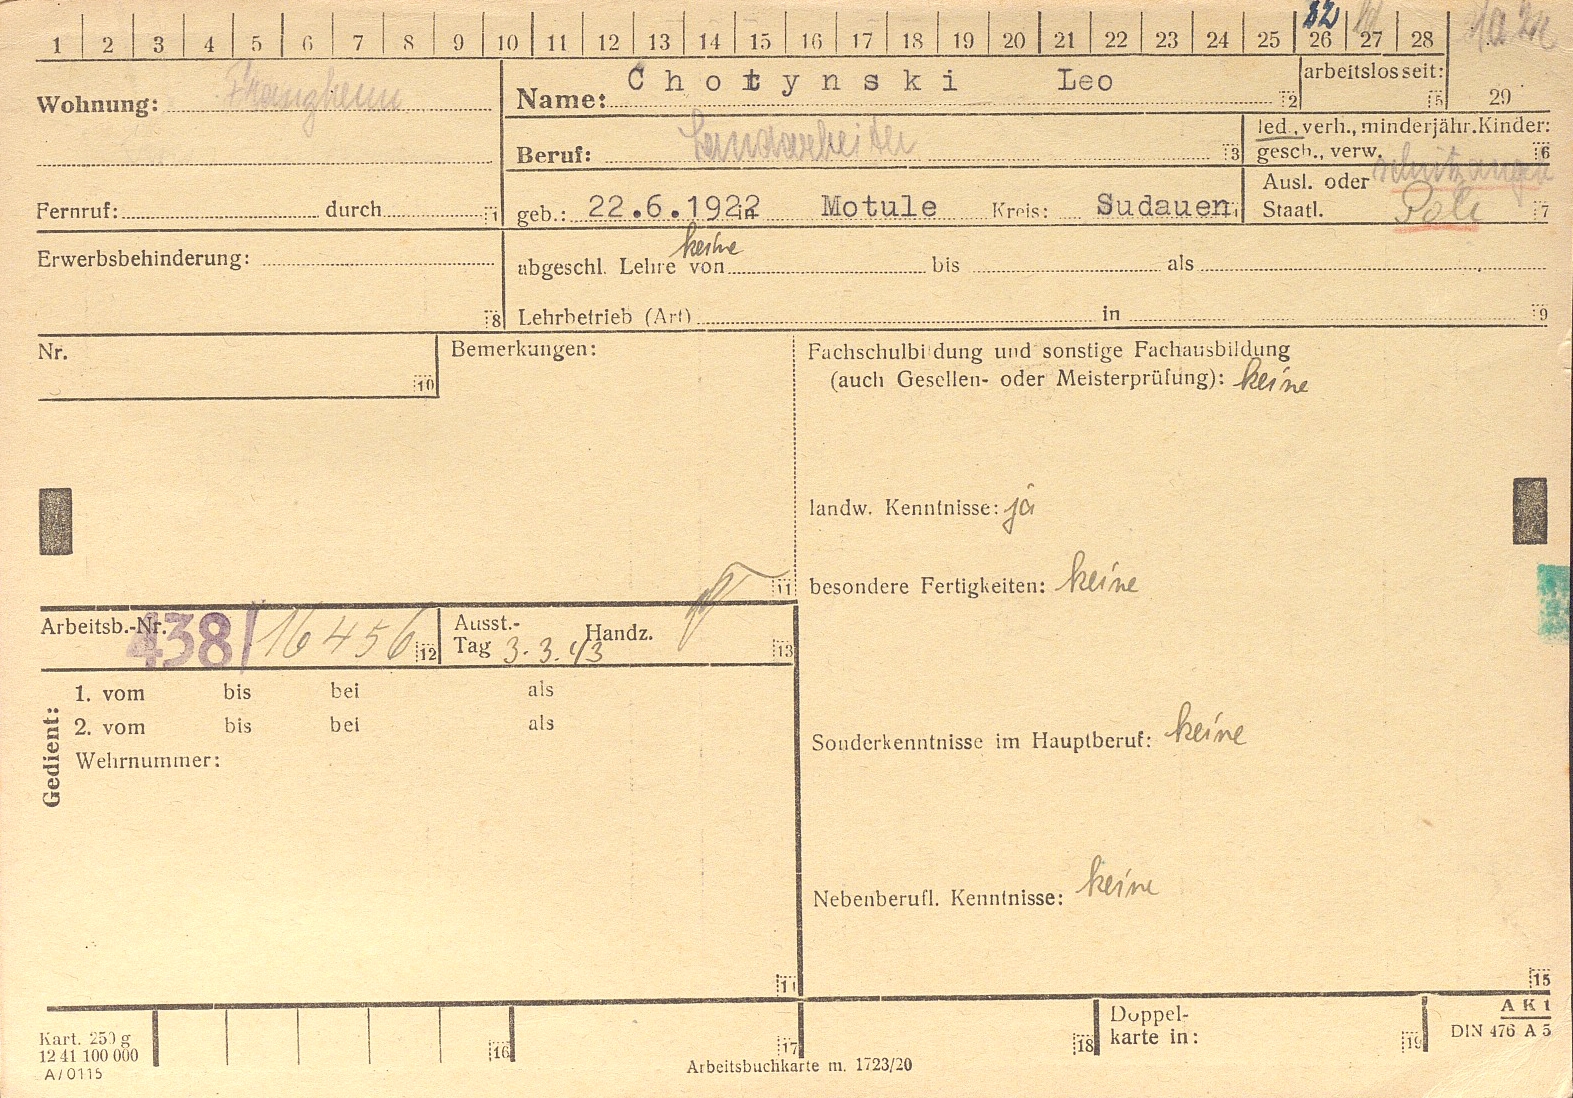 1 2 3 4 5 6 7 8 9 10 11 12 13 14 15 16 17 18 19 20 21 22 23 24 25 26 27 28
32
Wohnung:
Name: Chotynski Leo 2
arbeitslos seit: 5
29
Beruf: Landarbeiter 3
led., verh., minderjähr. Kinder:
gesch., verw. 6
Fernruf: durch 1
geb.: 22.6.1922 in Motule Kreis: Sudauen
Ausl. oder
Staatl. Pole 7
Erwerbsbehinderung: 8
keine
abgeschl. Lehre von bis als
Lehrbetrieb (Art) in 9
Nr. 10
Bemerkungen: 11
Fachschulbildung und sonstige Fachausbildung
(auch Gesellen- oder Meisterprüfung): keine
landw. Kenntnisse: ja
besondere Fertigkeiten: keine
Arbeitsb.-Nr. 438/16456 12
Ausst.-
Tag 3.3.43 Handz. 13
1. vom bis bei als
2. vom bis bei als
Gedient:
Wehrnummer:
Sonderkenntnisse im Hauptberuf: keine
Nebenberufl. Kenntnisse: keine
15
Kart. 250 g
12 41 100 000
A/0115
16
17
18
Doppel-
karte in: 19
A K 1
DIN 476 A 5
Arbeitsbuchkarte m. 1723/20